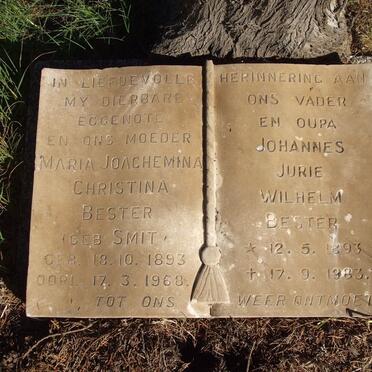 IN LIEFDEVOLLE
MY DIERBARE
EGGENOTE
EN ONS MOEDER
MARIA JOACHEMINA
CHRISTINA
BESTER
(GEB SMIT)
GEB. 18.10.1893
OORL. 17.3.1968
TOT ONS
HERINNERING AAN
ONS VADER
EN OUPA
JOHANNES
JURIE
WILHELM
BESTER
* 12.5.1893
† 17.9.1983
WEER ONTMOET